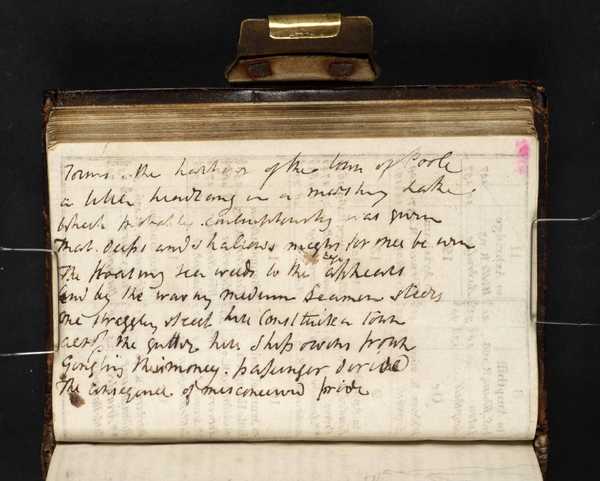 Forms the harbor of the town of Poole
a little headlong in a marshy Lake
Which probably contemptuously was given
That deeps and shallows might for once be even
The floating sea weeds to the eye appears
and by the waving medium Seamen steers
One straggling street here Constitutes a town
across the gutter here Ship owners frown
Gingling their money passenger deride
The consequence of misconceived pride